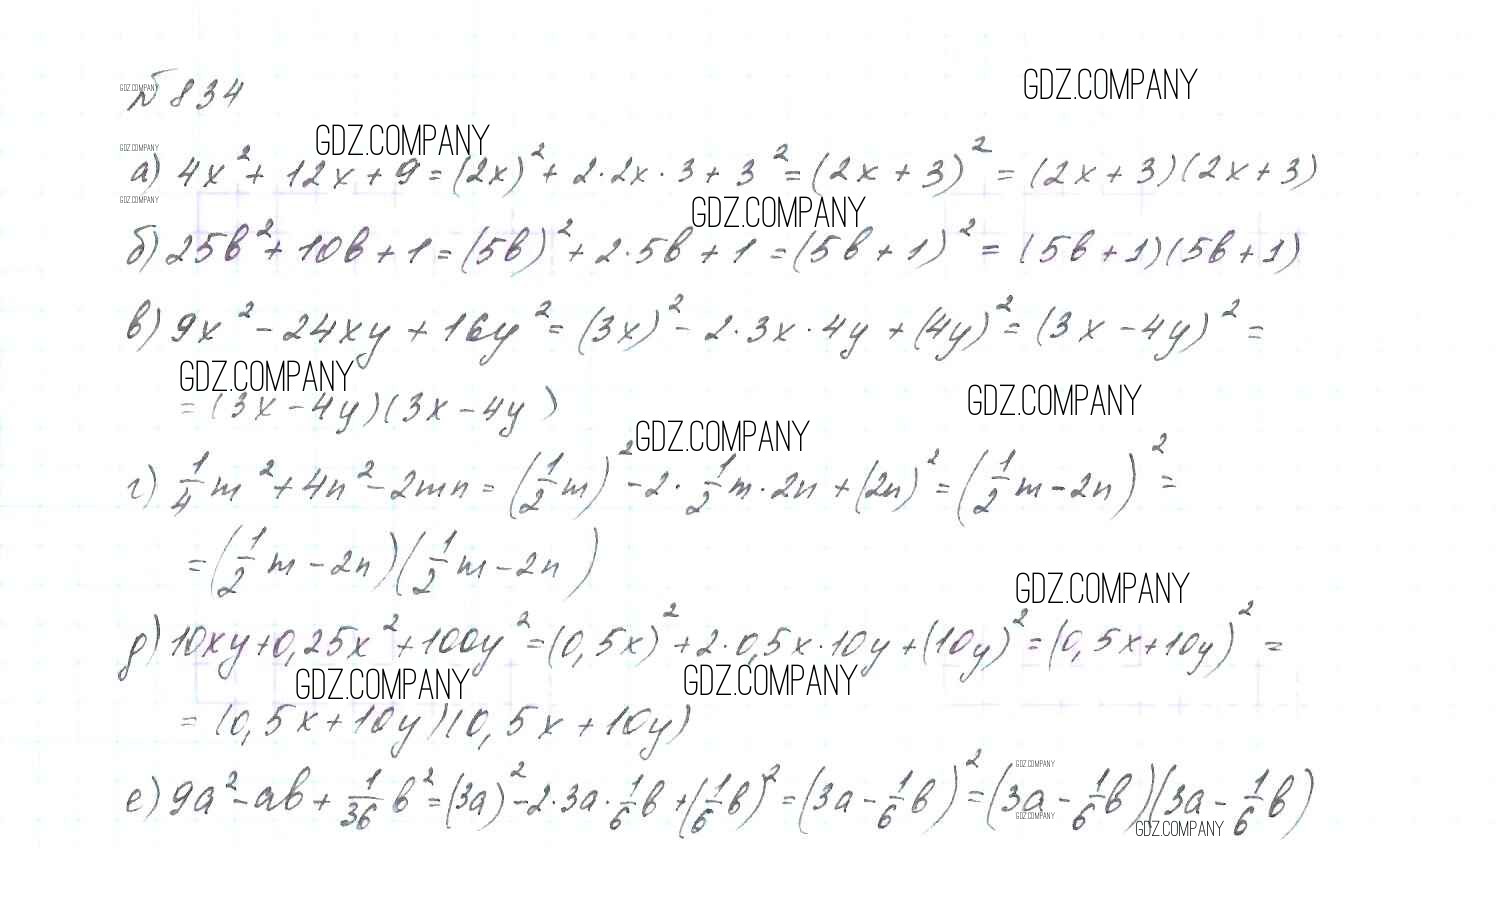 GDZ.COMPANY
№834
GDZ.COMPANY
GDZ.COMPANY
GDZ.COMPANY
а) 4x² + 12x + 9 = (2x)² + 2·2x·3 + 3² = (2x + 3)² = (2x + 3)(2x + 3)
GDZ.COMPANY
GDZ.COMPANY
б) 25b² + 10b + 1 = (5b)² + 2·5b + 1 = (5b + 1)² = (5b + 1)(5b + 1)
в) 9x² - 24xy + 16y² = (3x)² - 2·3x·4y + (4y)² = (3x - 4y)² =
GDZ.COMPANY
GDZ.COMPANY
= (3x - 4y)(3x - 4y)
GDZ.COMPANY
г) 1/4 m² + 4n² - 2mn = (1/2 m)² - 2·1/2 m·2n + (2n)² = (1/2 m - 2n)² =
= (1/2 m - 2n)(1/2 m - 2n)
GDZ.COMPANY
д) 10xy + 0,25x² + 100y² = (0,5x)² + 2·0,5x·10y + (10y)² = (0,5x + 10y)² =
GDZ.COMPANY
GDZ.COMPANY
= (0,5x + 10y)(0,5x + 10y)
GDZ.COMPANY
е) 9a² - ab + 1/36 b² = (3a)² - 2·3a·1/6 b + (1/6 b)² = (3a - 1/6 b)² = (3a - 1/6 b)(3a - 1/6 b)
GDZ.COMPANY
GDZ.COMPANY